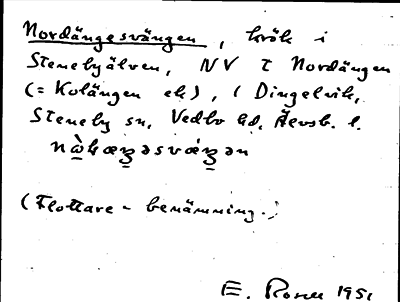 Nordängesvängen, krök i
Stenebyälven, NV t Nordängen
(= Kolängen ek), i Dingelvik,
Steneby sn, Vedbo hd, Älvsb. l.
(Flottare-benämning.)
E. Rosell 1951